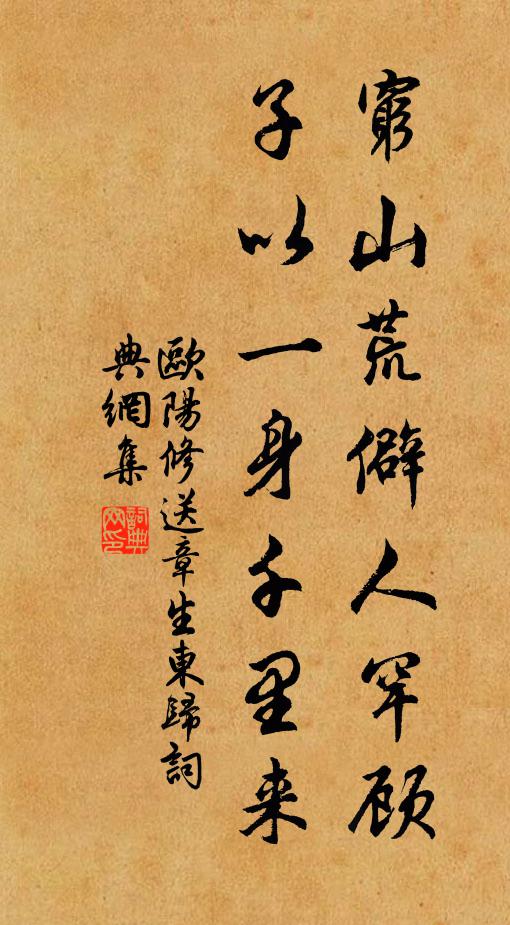 窮山荒僻人罕顾
子以一身千里来
歐陽修送章生東歸詞
典網集
詞典網印